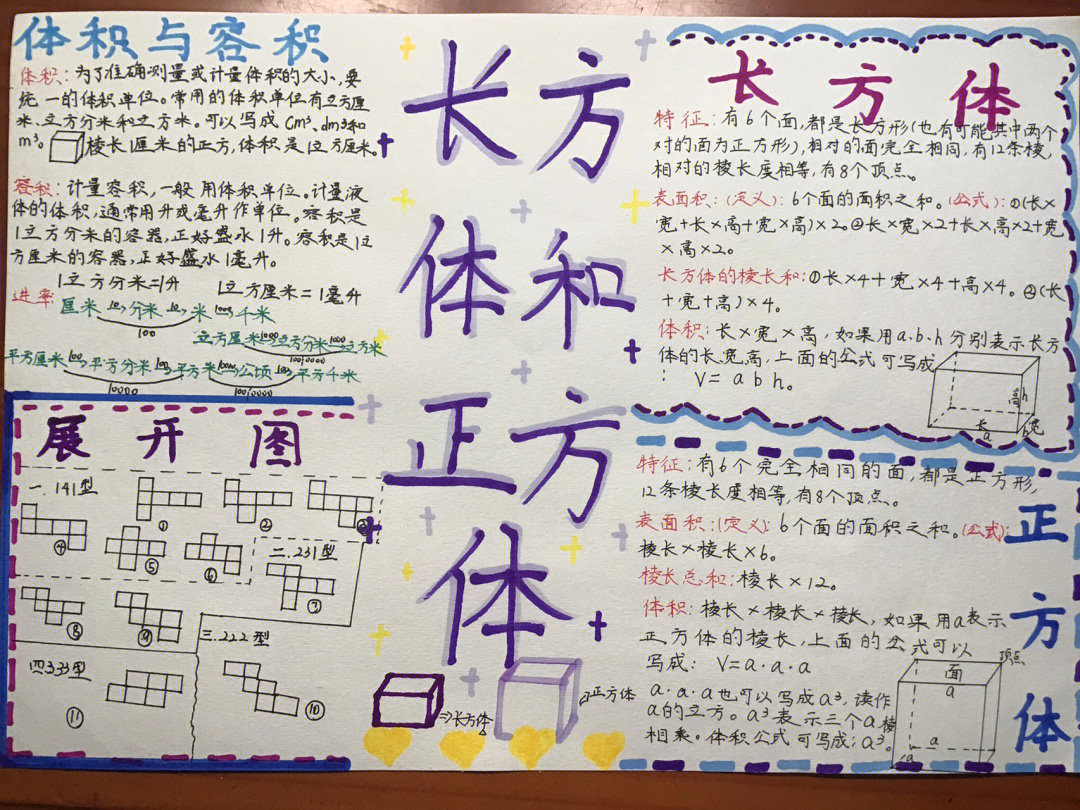 体积与容积
体积:为了准确测量或计量体积的大小,要
统一的体积单位。常用的体积单位有立方厘
米、立方分米和立方米。可以写成cm³、dm³和
m³。棱长1厘米的正方,体积是1立方厘米。
容积:计量容积,一般用体积单位。计量液
体的体积,通常用升或毫升作单位。容积是
1立方分米的容器,正好盛水1升。容积是1立
方厘米的容器,正好盛水1毫升。
1立方分米=1升 1立方厘米=1毫升
进率:厘米 10 分米 10 米 1000 千米
100
立方厘米 1000 立方分米 1000 立方米
1000000
平方厘米 100 平方分米 100 平方米 10000 公顷 100 平方千米
10000 1000000
展开图
一.141型
① ② ③
④ ⑤ ⑥
二.231型
⑦
⑧ ⑨
三.222型
⑩
四33型
⑪
长方
体和
正方
体
⇒长方体
正方体
长方体
特征:有6个面,都是长方形(也有可能其中两个
对的面为正方形),相对的面完全相同,有12条棱,
相对的棱长度相等,有8个顶点。
表面积:(定义):6个面的面积之和。(公式):①(长×
宽+长×高+宽×高)×2。②长×宽×2+长×高×2+宽
×高×2。
长方体的棱长和:①长×4+宽×4+高×4。②(长
+宽+高)×4。
体积:长×宽×高,如果用a.b.h分别表示长方
体的长宽高,上面的公式可写成
: V=abh。
高h
长 宽
a b
正方体
特征:有6个完全相同的面,都是正方形,
12条棱长度相等,有8个顶点。
表面积:(定义):6个面的面积之和。(公式):
棱长×棱长×6。
棱长总和:棱长×12。
体积:棱长×棱长×棱长,如果用a表示
正方体的棱长,上面的公式可以
写成:V=a·a·a
a·a·a也可以写成a³,读作
a的立方。a³表示三个a
相乘。体积公式可写成:a³。
顶点
面
a
棱
a
a